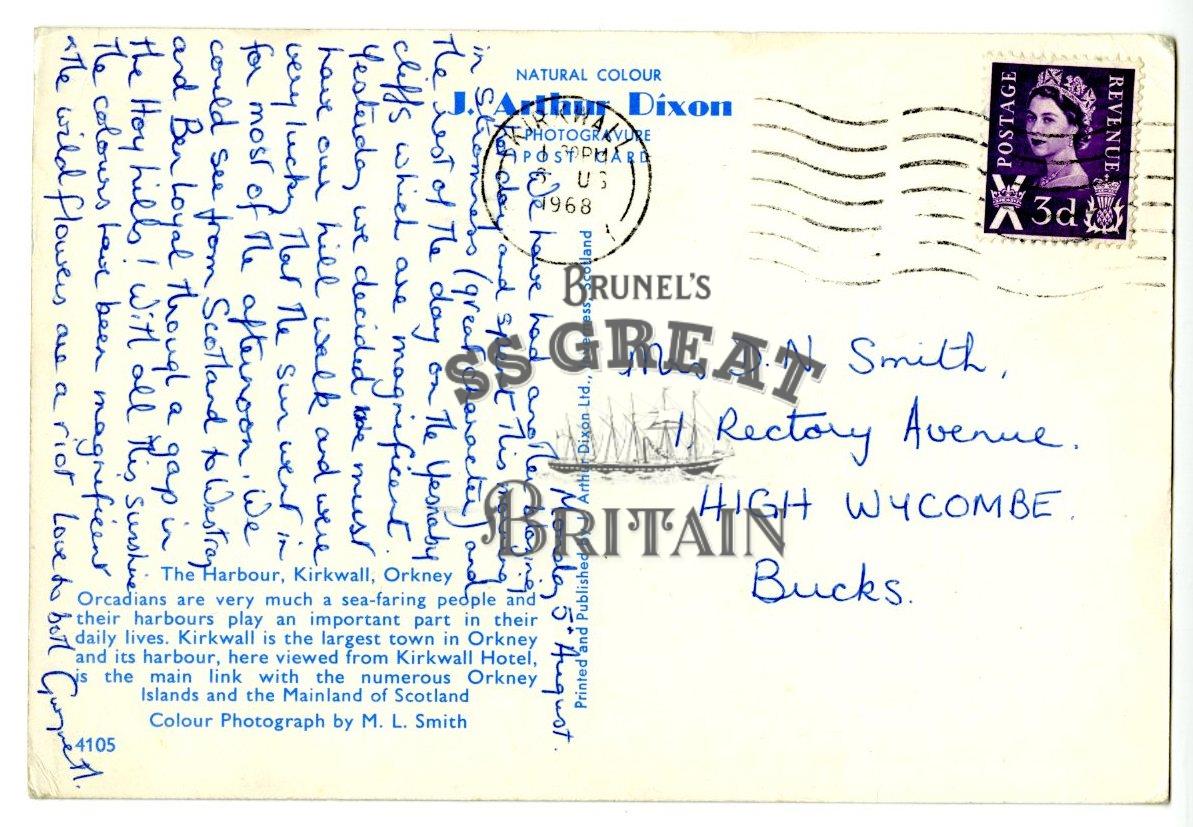 NATURAL COLOUR
J. Arthur Dixon
PHOTOGRAVURE
POST CARD
KIRKWALL
1968
POSTAGE
REVENUE
3d
Monday 5th August.
We have had another blazing
hot day and spent this morning
in Stromness (great character) and
the rest of the day on the Yesnaby
cliffs which are magnificent.
Yesterday we decided we must
have our hill walk and were
very lucky that the sun went in
for most of the afternoon. We
could see from Scotland to Westray
and Ben Loyal through a gap in
the Hoy hills! With all this sunshine
the colours have been magnificent
the wild flowers are a riot Love to both Gwyneth.
Printed and Published by J. Arthur Dixon Ltd., Inverness, Scotland
Mrs D. N. Smith,
1, Rectory Avenue.
HIGH WYCOMBE.
Bucks.
BRUNEL'S
SS GREAT
BRITAIN
The Harbour, Kirkwall, Orkney
Orcadians are very much a sea-faring people and
their harbours play an important part in their
daily lives. Kirkwall is the largest town in Orkney
and its harbour, here viewed from Kirkwall Hotel,
is the main link with the numerous Orkney
Islands and the Mainland of Scotland
Colour Photograph by M. L. Smith
4105